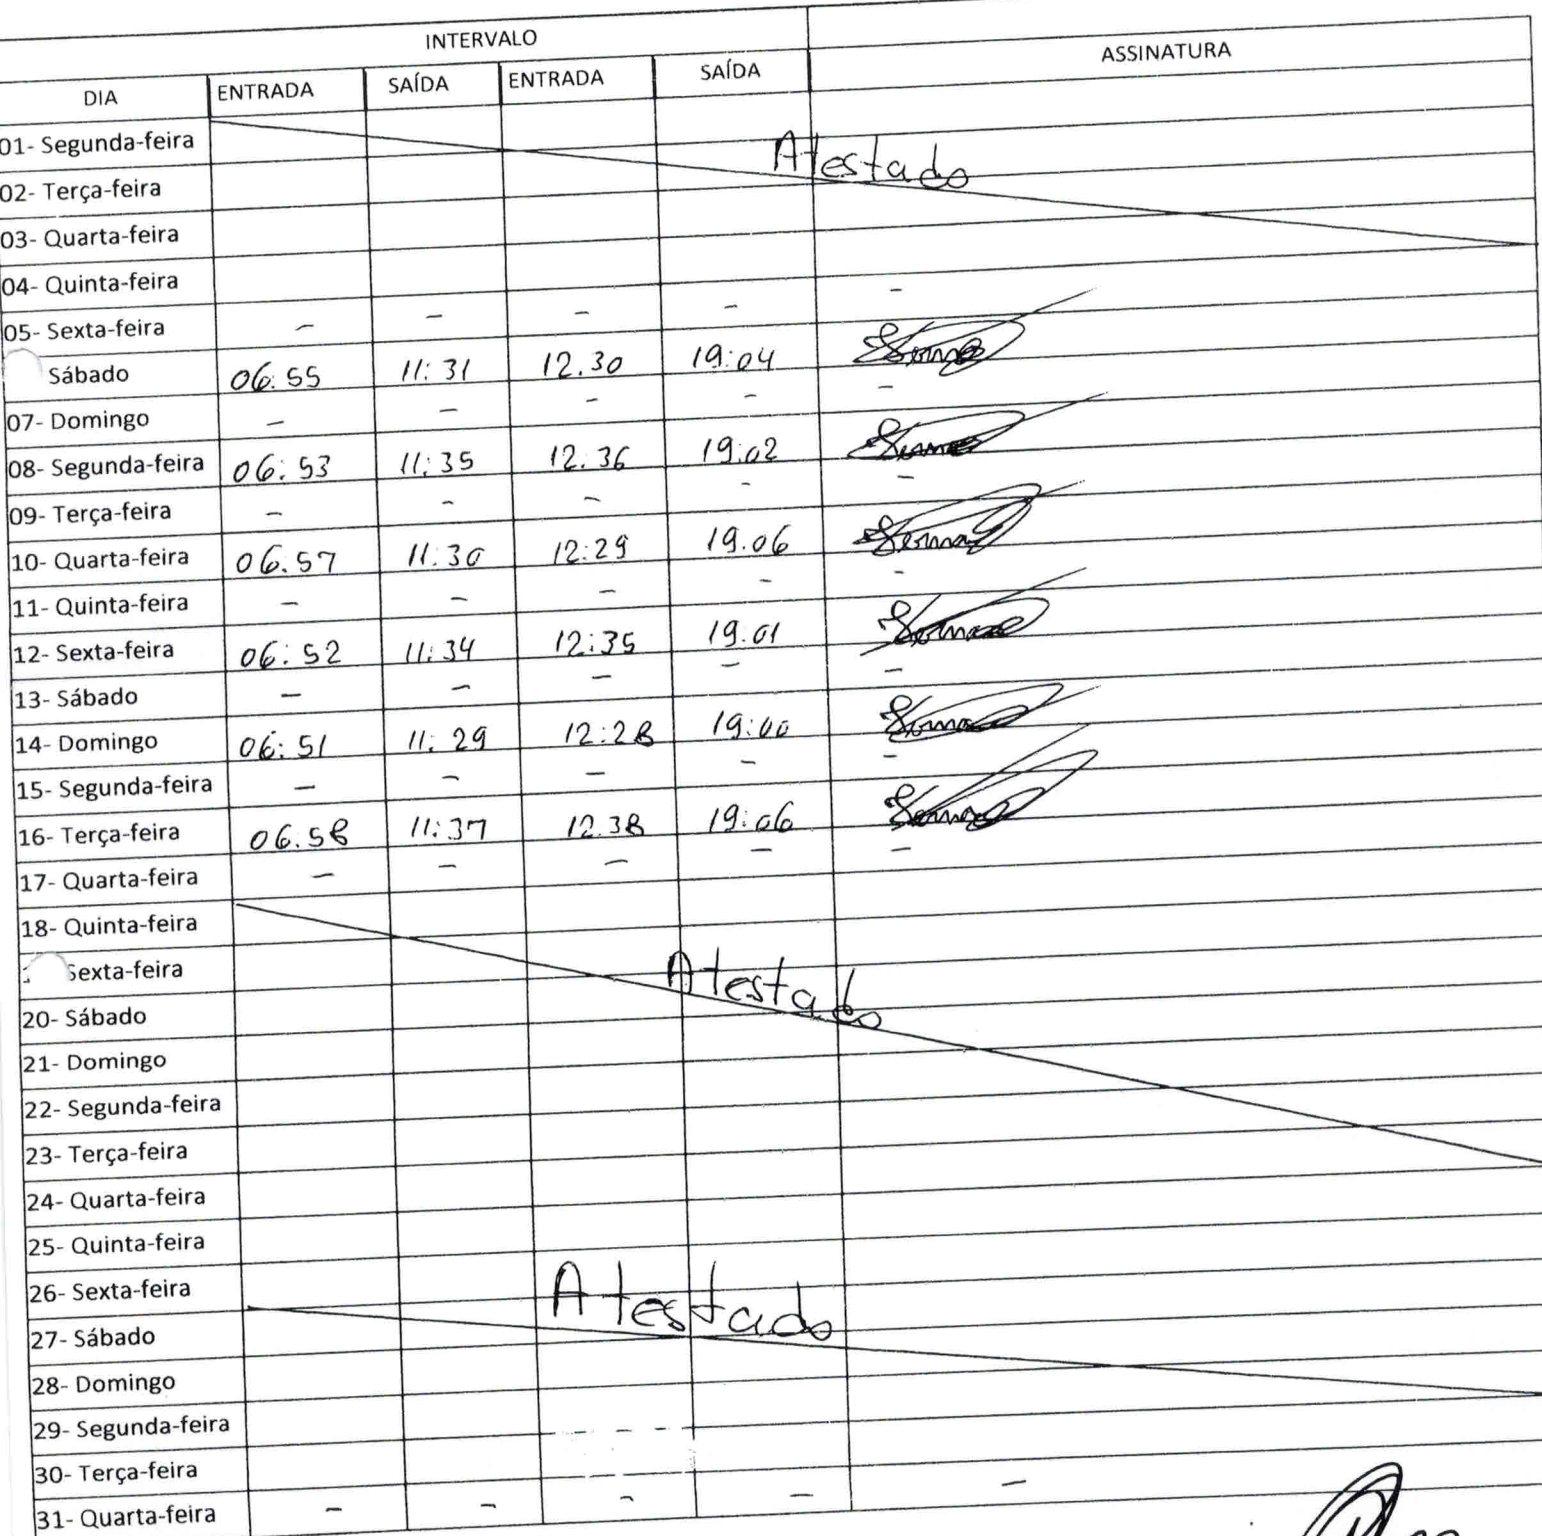 INTERVALO
DIA ENTRADA SAÍDA ENTRADA SAÍDA ASSINATURA
01- Segunda-feira
Atestado
02- Terça-feira
03- Quarta-feira
04- Quinta-feira
05- Sexta-feira - - - - -
Sábado 06:55 11:31 12.30 19:04
07- Domingo - - - - -
08- Segunda-feira 06:53 11:35 12.36 19:02
09- Terça-feira - - - - -
10- Quarta-feira 06.57 11:30 12:29 19.06
11- Quinta-feira - - - - -
12- Sexta-feira 06:52 11:34 12:35 19.01
13- Sábado - - - - -
14- Domingo 06:51 11:29 12:28 19:00
15- Segunda-feira - - - - -
16- Terça-feira 06.58 11:37 12.38 19:06
17- Quarta-feira - - - - -
18- Quinta-feira
Sexta-feira Atestado
20- Sábado
21- Domingo
22- Segunda-feira
23- Terça-feira
24- Quarta-feira
25- Quinta-feira
26- Sexta-feira Atestado
27- Sábado
28- Domingo
29- Segunda-feira
30- Terça-feira
31- Quarta-feira - - - - -